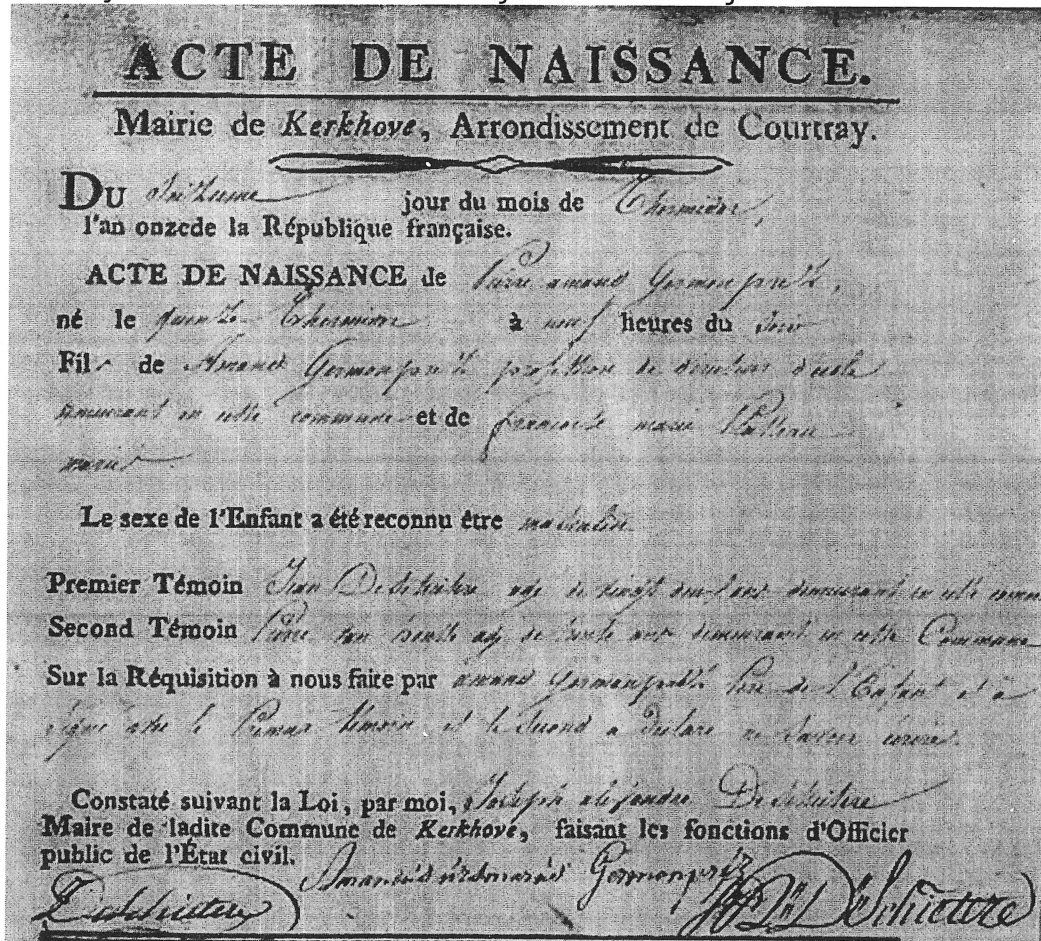 ACTE DE NAISSANCE.
Mairie de Kerkhove, Arrondissement de Courtray.
DU Seizieme jour du mois de Thermidor,
l'an onzede la République française.
ACTE DE NAISSANCE de Pierre amand Germonprez,
né le quinze Thermidor à neuf heures du soir
Fils de Amand Germonprez profession de directeur d'ecole
demeurant en cette commune et de francoise marie
mariés
Le sexe de l'Enfant a été reconnu être masculin
Premier Témoin Jean De Schietere agé de vingt ans demeurant en cette commune
Second Témoin Pierre van agé de trente ans demeurant en cette Commune
Sur la Réquisition à nous faite par amand germonprez Pere de l'Enfant et a
signé avec le Premier témoin et le second a declaré ne savoir ecrire.
Constaté suivant la Loi, par moi, Joseph alexandre De Schietere
Maire de ladite Commune de Kerkhove, faisant les fonctions d'Officier
public de l'État civil.
Germonprez
De Schietere J A De Schietere